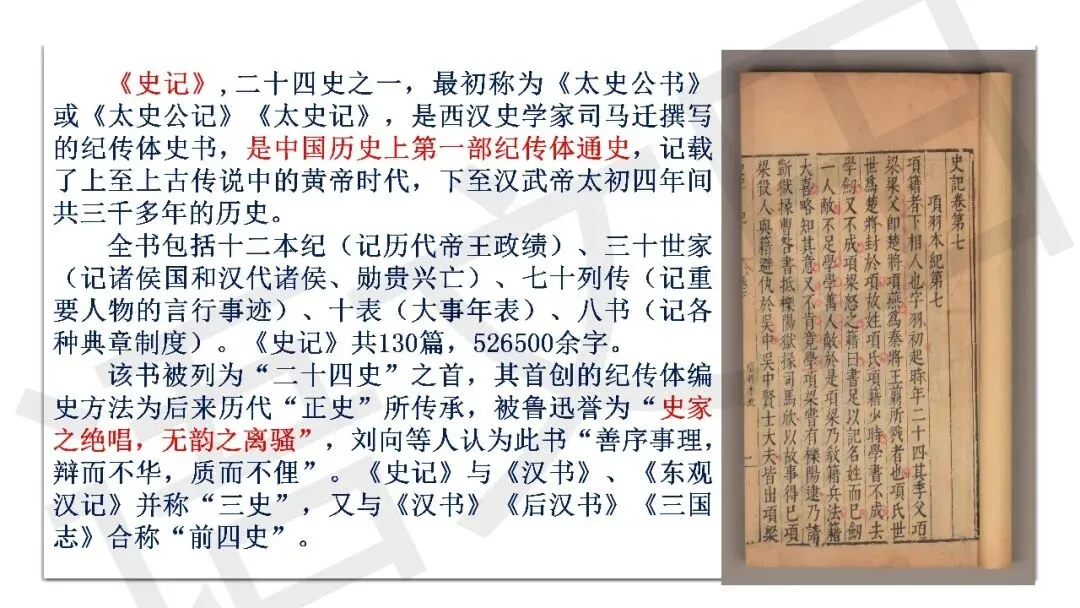 《史记》,二十四史之一，最初称为《太史公书》
或《太史公记》《太史记》，是西汉史学家司马迁撰写
的纪传体史书，是中国历史上第一部纪传体通史，记载
了上至上古传说中的黄帝时代，下至汉武帝太初四年间
共三千多年的历史。
全书包括十二本纪（记历代帝王政绩）、三十世家
（记诸侯国和汉代诸侯、勋贵兴亡）、七十列传（记重
要人物的言行事迹）、十表（大事年表）、八书（记各
种典章制度）。《史记》共130篇，526500余字。
该书被列为“二十四史”之首，其首创的纪传体编
史方法为后来历代“正史”所传承，被鲁迅誉为“史家
之绝唱，无韵之离骚”，刘向等人认为此书“善序事理，
辩而不华，质而不俚”。《史记》与《汉书》、《东观
汉记》并称“三史”，又与《汉书》《后汉书》《三国
志》合称“前四史”。
史記卷第七
項羽本紀第七
項籍者下相人也字羽初起時年二十四其季父項
梁梁父即楚將項燕爲秦將王翦所戮者也項氏世
世爲楚將封於項故姓項氏項籍少時學書不成去
學劒又不成項梁怒之籍曰書足以記名姓而已劒
一人敵不足學學萬人敵於是項梁乃教籍兵法籍
大喜略知其意又不肯竟學項梁嘗有櫟陽逮乃請
蘄獄掾曹咎書抵櫟陽獄掾司馬欣以故事得已項
梁殺人與籍避仇於吳中吳中賢士大夫皆出項梁